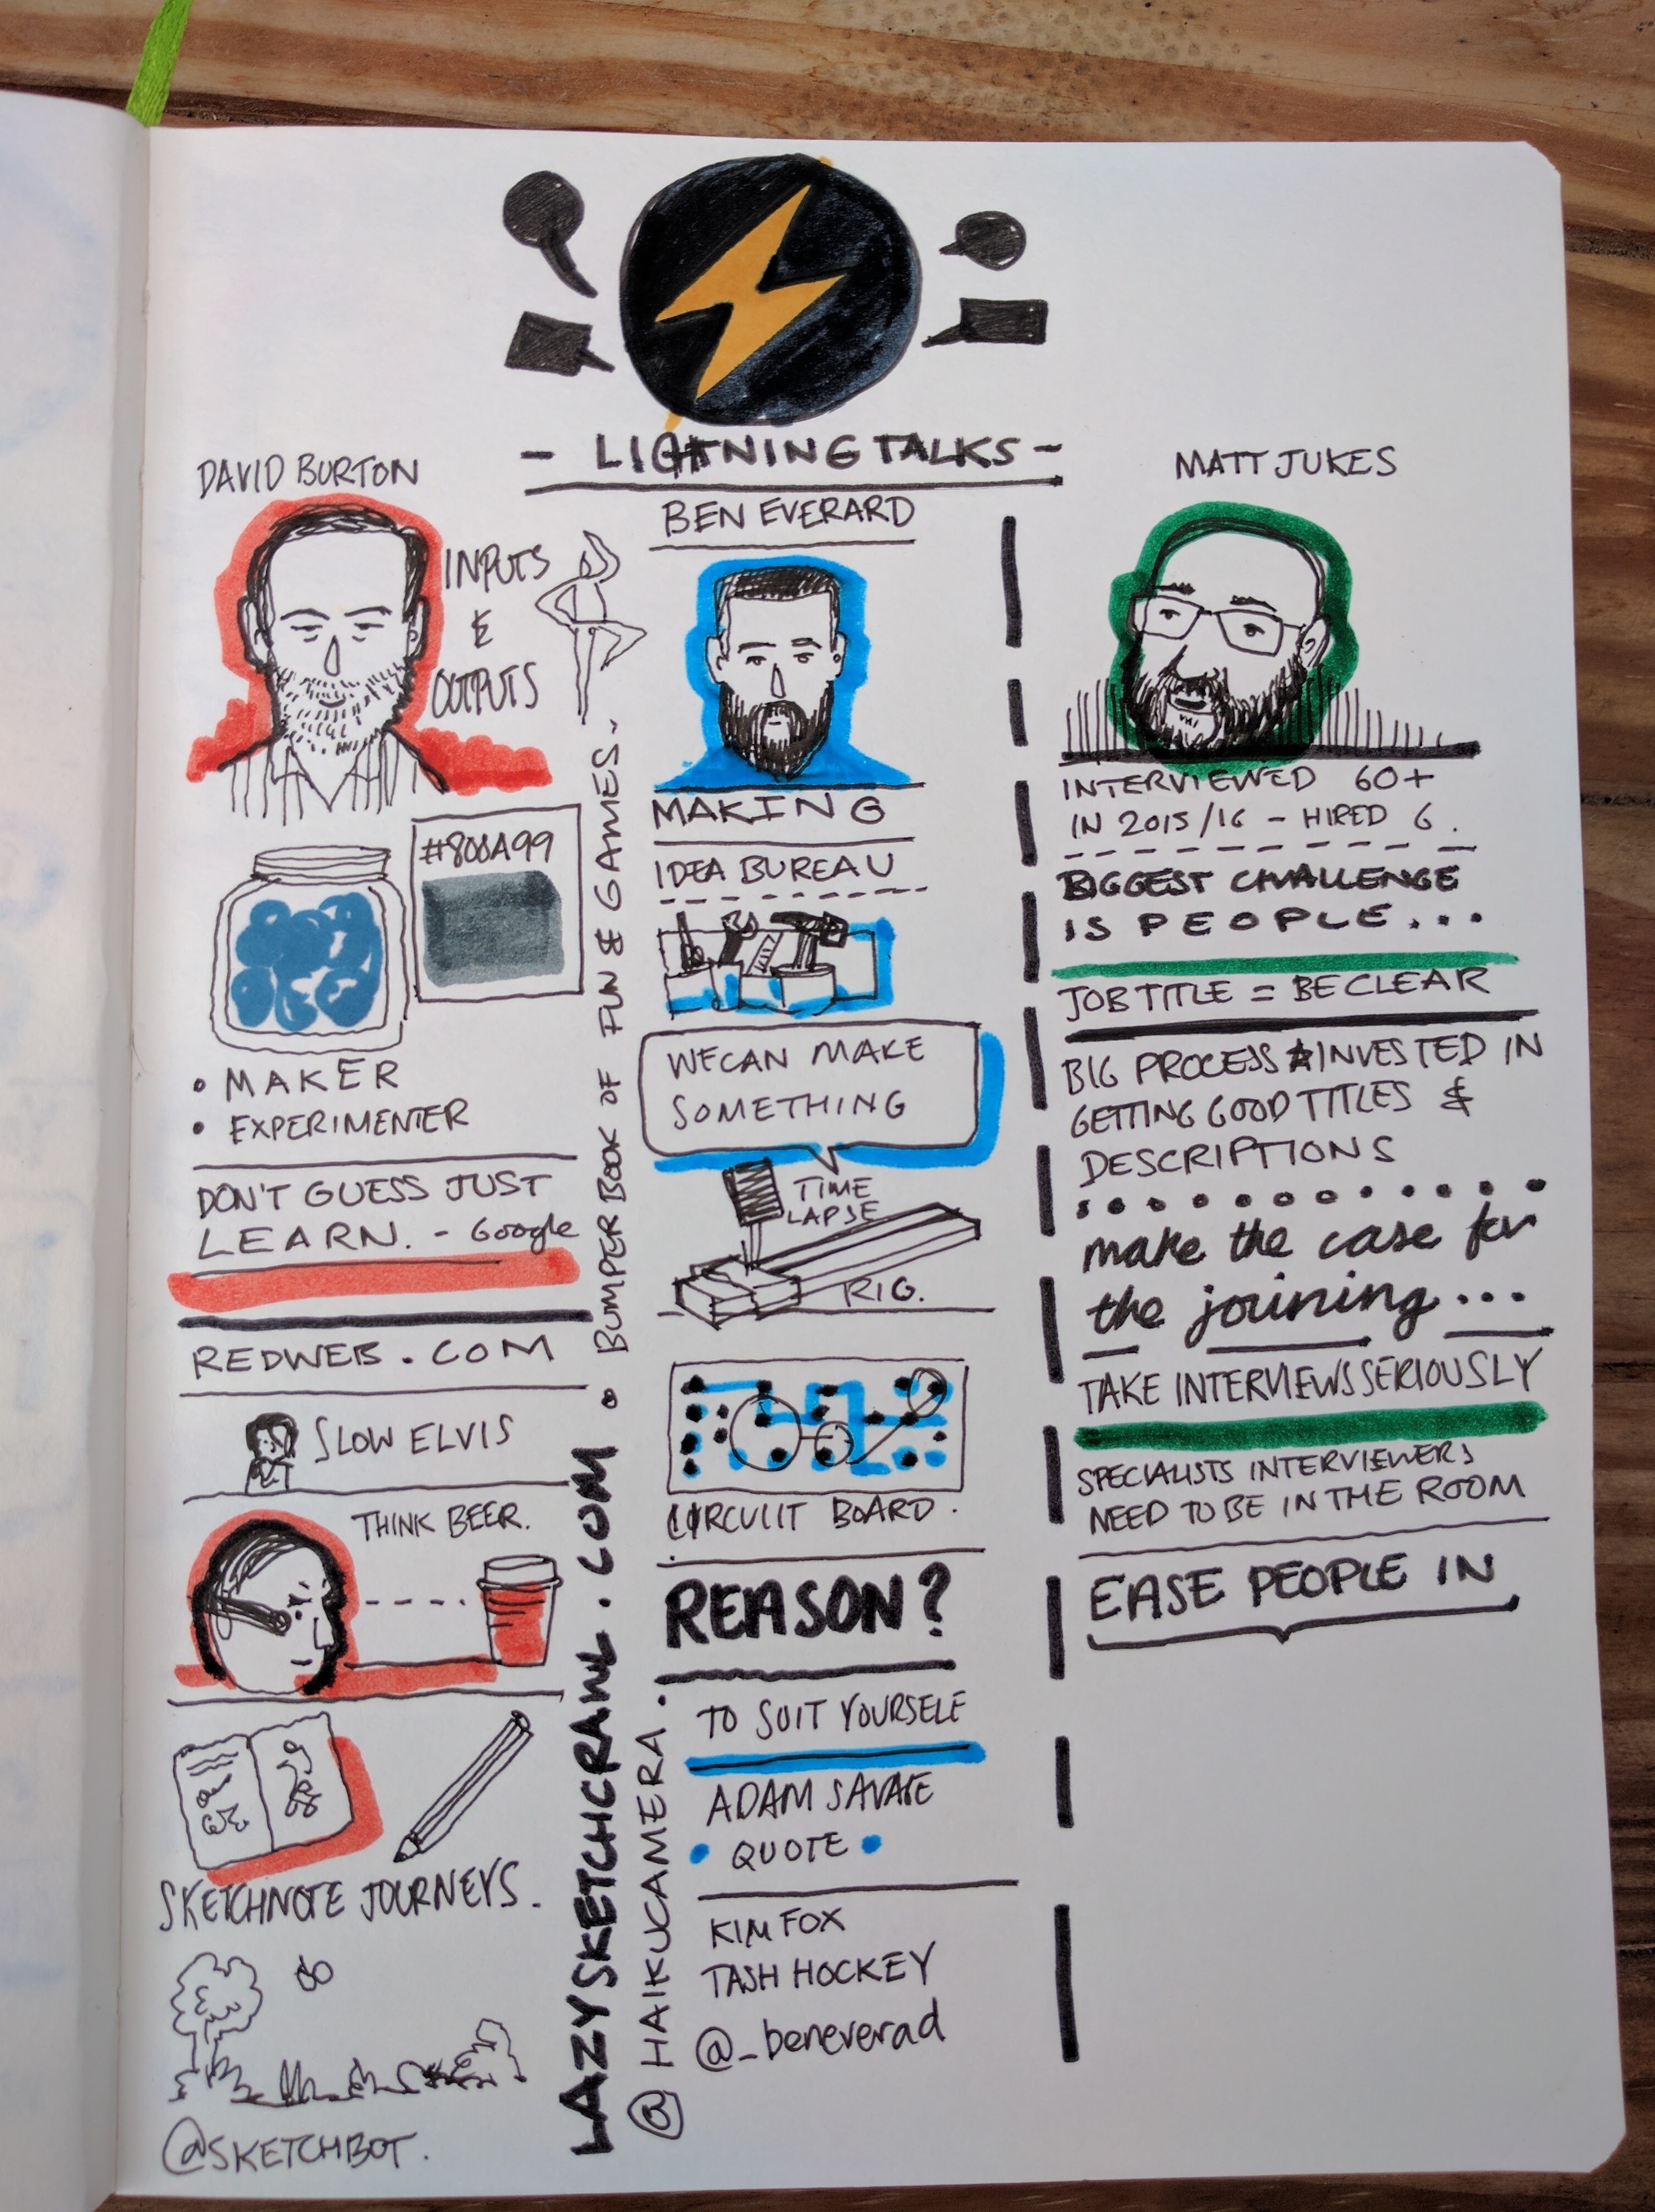 - LIGHTNING TALKS -
DAVID BURTON
INPUTS
&
OUTPUTS
#800A99
• MAKER
• EXPERIMENTER
DON'T GUESS JUST
LEARN. - Google
REDWEB.COM
SLOW ELVIS
THINK BEER.
SKETCHNOTE JOURNEYS.
@SKETCHBOT.
LAZYSKETCHCRAWL.COM • BUMPER BOOK OF FUN & GAMES.
@HAIKUCAMERA.
BEN EVERARD
MAKING
IDEA BUREAU
WE CAN MAKE
SOMETHING
TIME
LAPSE
RIG.
CIRCUIIT BOARD.
REASON?
TO SUIT YOURSELF
ADAM SAVAGE
• QUOTE •
KIM FOX
TASH HOCKEY
@_beneverad
MATT JUKES
INTERVIEWED 60+
IN 2015/16 - HIRED 6.
BIGGEST CHALLENGE
IS PEOPLE...
JOB TITLE = BE CLEAR
BIG PROCESS INVESTED IN
GETTING GOOD TITLES &
DESCRIPTIONS
make the case for
the joining...
TAKE INTERVIEWS SERIOUSLY
SPECIALISTS INTERVIEWERS
NEED TO BE IN THE ROOM
EASE PEOPLE IN